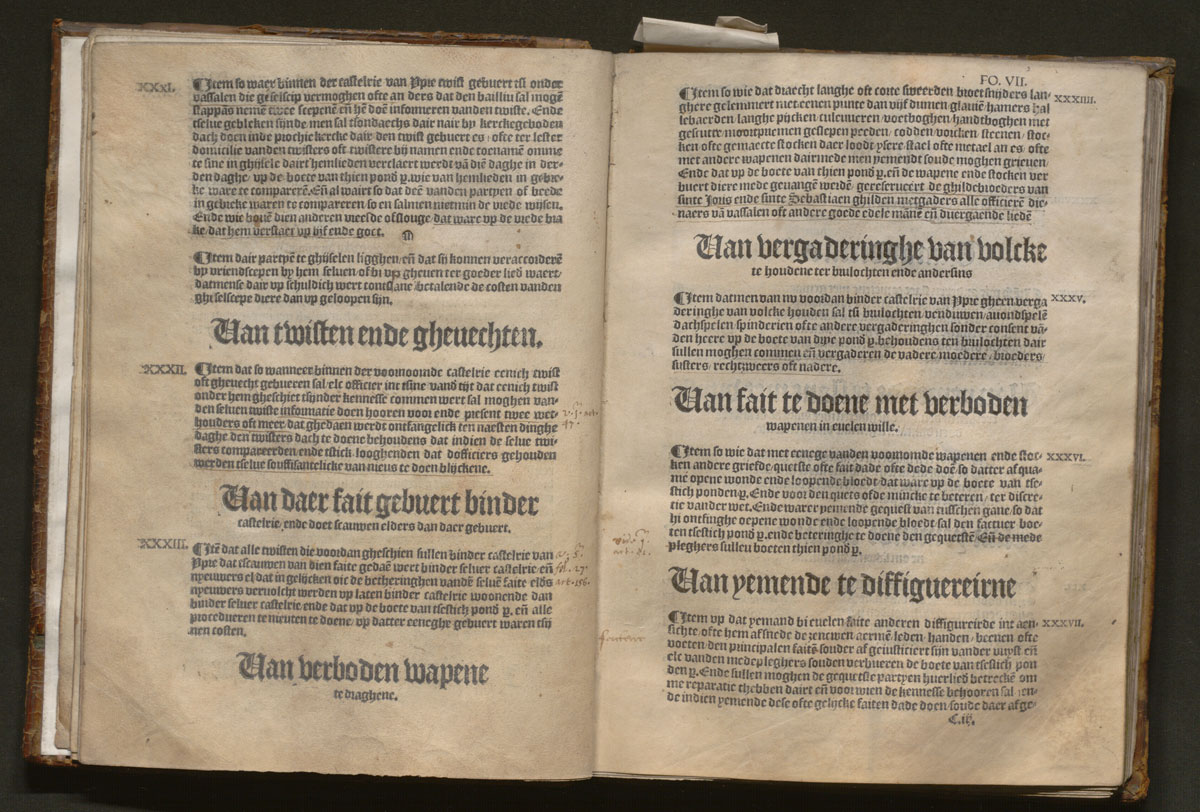 XXXI. ¶Item so waer binnen der castelrie van Ypre twist gebuert tsi onder
vassalen die geselscip vermoghen ofte an ders dat den bailliu sal mogē
stappās nemē twee scepenē eñ hē doē informeren vanden twiste. Ende
tselue gebleken sijnde men sal tsondaechs dair nair by kerckegeboden
dach doen inde prochie kercke dair den twist gebuert es / ofte ter lester
domicilie vanden twisters oft twistere bij namen ende toenamē omme
te sine in ghijsele dairt hemlieden verclaert werdt vā diē daghe in der-
den daghe / vp de boete van thien pond ꝑ. wie van hemlieden in gebre-
ke ware te comparerē. Eñ al wairt so dat deē vanden partyen of beede
in gebreke waren te compareren so en salmen nietmin de vrede wijsen.
Ende wie bouē dien anderen vreesde of slouge / dat ware vp de vrede bra
ke / dat hem verstaet vp lijf ende goet.
¶Item dair partyē te ghijselen ligghen / eñ dat sij konnen veraccorderē
by vriendscepen by hem seluen of bi vp gheuen ter goeder lied waert /
datmense dair vp schuldich wert tontslane betalende de costen vanden
ghiselscepe diere dan vp geloopen sijn.
Van twisten ende gheuechten.
XXXII. ¶Item dat so wanneer binnen der voornoomde castelrie eenich twist
oft gheuecht gebueren sal / elc officier int tsine vand tijt dat eenich twist
onder hem gheschiet tsijnder kennesse commen wert sal moghen van-
den seluen twiste informatie doen hooren voor ende present twee wet-
houders oft meer dat ghedaen werdt ontfangelick ten naesten dinghe
daghe den twisters dach te doene behoudens dat indien de selue twi-
sters compareerden ende tstick looghenden dat dofficiers gehouden
werden tselue souffisantelicke van nieus te doen blijckene.
Van daer fait gebuert binder
castelrie / ende doet scauwen elders dan daer gebuert.
XXXIII. ¶Itē dat alle twisten die voordan gheschien sullen binder castelrie van
Ypre dat tscauwen van dien faite gedaē weet binder seluer castelrie eñ
nyeuwers el dat in gelijcken oic de betheringhen vandē seluē faite elds
nyeuwers vervolcht werden vp laten binder castelrie woonende dan
binder seluer castelrie ende dat vp de boete van tsestich pond ꝑ. eñ alle
procedueren te nieuten te doene / vp datter eeneghe gebuert waren tsij
nen costen.
Van verboden wapene
te draghene.
FO. VII.
¶Item so wie dat draecht langhe oft corte sweerden broetsnijders lan- XXXIIII.
ghere gelemmert met eenen punte dan vijf dumen glauiē / hamers hal
lebaerden / langhe pijcken / culeuueren / voetboghen / handtboghen met
gescutte / moortpriemen geslepen peeden / codden / vorcken steenen / stoc-
ken ofte gemaecte stocken daer loodt / ysere stael ofte metael an es / ofte
met andere wapenen dairmede men yemendt soude moghen grieuen /
Ende dat vp de boete van thien pond ꝑ. eñ de wapene ende stocken ver
buert diere mede geuangē werdē. gereserueert de ghildebroeders van
sinte Joris ende sinte Sebastiaen ghilden metgaders alle officierē die-
naers vā vassalen oft andere goede edele mānē eñ duergaende liedē
Van vergaderinghe van volcke
te houdene ter bruulochten ende anderssins
¶Item datmen van nv voordan binder castelrie van Ypre gheen verga XXXV.
deringhe van volcke houden sal tsi bruulochten / venduwen / auondspelē
dachspelen spinderien ofte andere vergaderinghen sonder consent vā-
den heere vp de boete van drye pond ꝑ. behoudens ten bruulochten dair
sullen moghen commen eñ vergaderen de vadere moedere / broeders /
susters / rechtzweers oft nadere.
Van fait te doene met verboden
wapenen in euelen wille.
¶Item so wie dat met eenege vanden voornomde wapenen ende stoc- XXXVI.
ken andere griefde / quetste ofte fait dade ofte dede doē / so datter af qua-
me opene wonde ende loopende bloedt dat ware vp de boete van tse-
stich ponden ꝑ. Ende voor den quets ofde mincke te beteren / ter discre-
tie vander wet. Ende warer yemende gequest van tusschen gane / so dat
hi ontfinghe oepene wonde ende loopende bloedt sal den facteur boe-
ten tsestich pond ꝑ. ende beteringhe te doene den gequestē. Eñ de mede
pleghers sullen boeten thien pond ꝑ.
Van yemende te diffiguereirne
¶Item vp dat yemand bi euelen faite anderen diffigureirde int aen- XXXVII.
sichte ofte hem afsnede de zenewen aermē / leden / handen / beenen ofte
voeten / den principalen faitē souder af geiusticiert sijn vander vuyst eñ
elc vanden medepleghers souden verbueren de boete van tsestich pon
den ꝑ. Ende sullen moghen de gequetste partyen huerlied betreckē om
me reparatie thebben dairt eñ voor wien de kennesse behooren sal / en-
de indien yemende dese ofte gelijcke faiten dade doen / soude daer af ge-
C.iij.